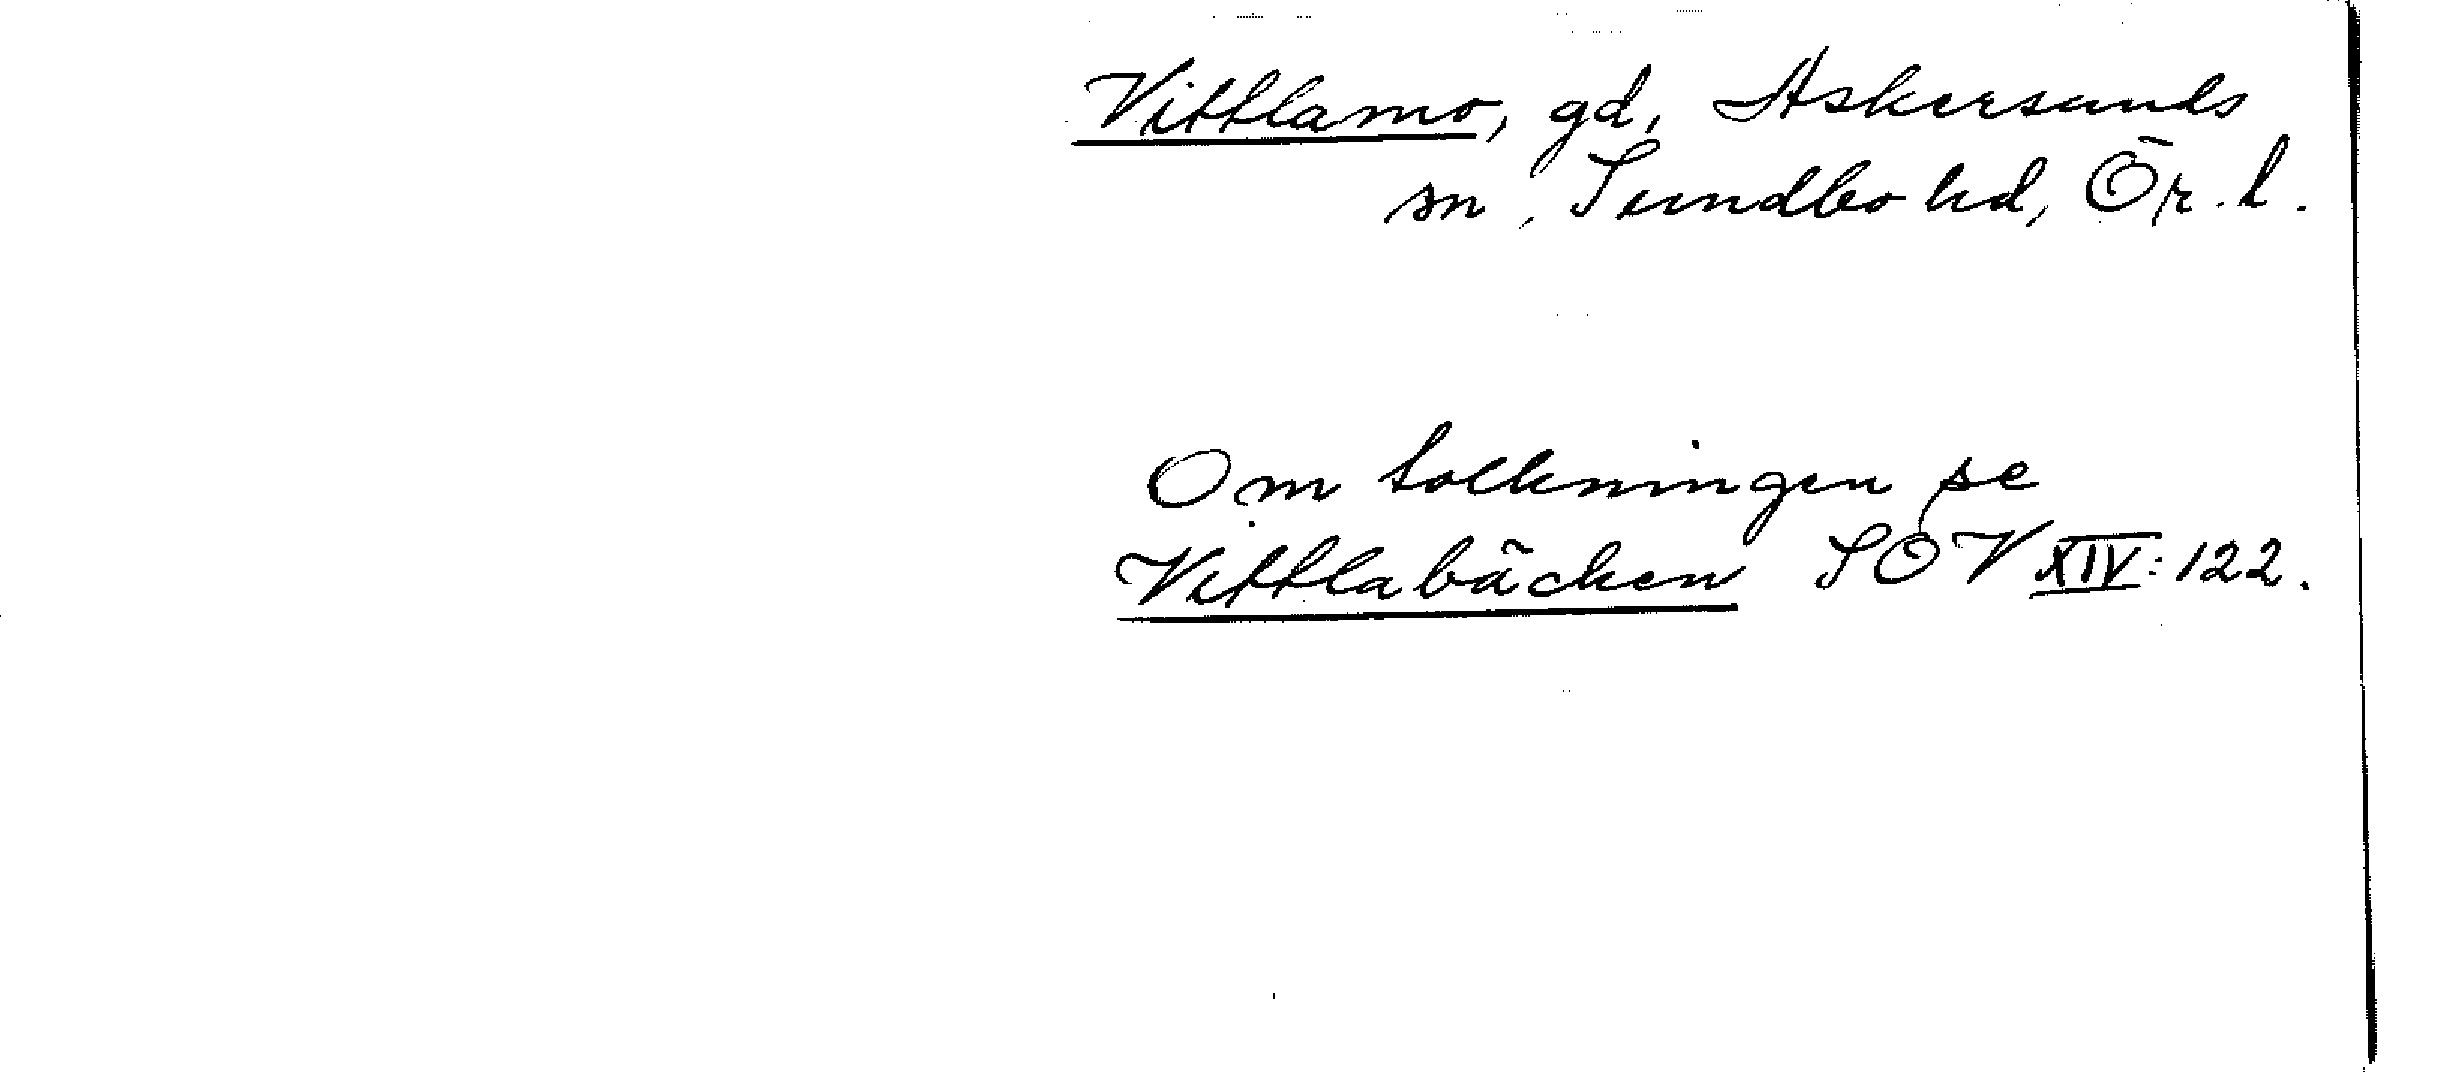 Vittlamo, gd, Askersunds
sn, Sundbo hd, Ör. l.
Om tolkningen se
Vittlabäcken SOV XIV: 122.